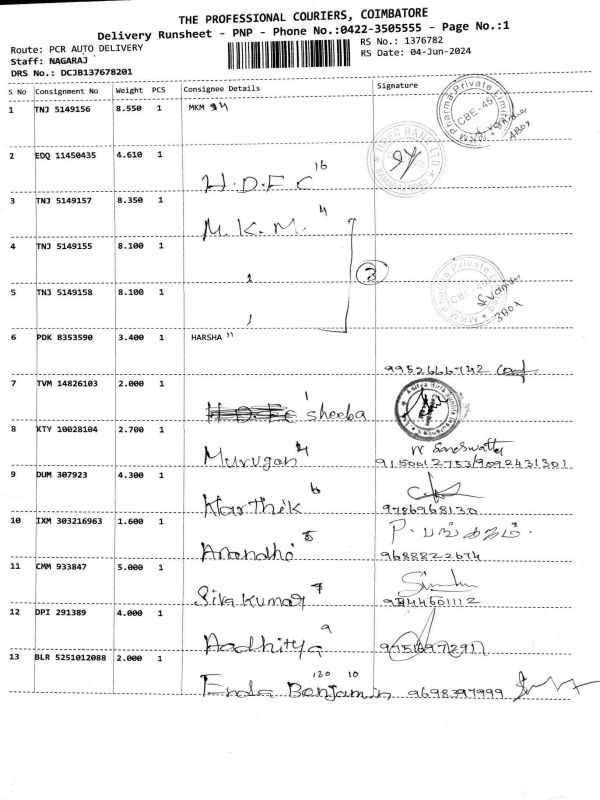 THE PROFESSIONAL COURIERS, COIMBATORE
Delivery Runsheet - PNP - Phone No.:0422-3505555 - Page No.:1
Route: PCR AUTO DELIVERY
RS No.: 1376782
Staff: NAGARAJ
RS Date: 04-Jun-2024
DRS No.: DCJB137678201
S No Consignment No Weight PCS Consignee Details Signature
1 TNJ 5149156 8.550 1 MKM 34
MKM Pharma Private Limited CBE-45
ABox
2 EDQ 11450435 4.610 1
H.D.F.C 16
HDFC BANK LTD
3 TNJ 5149157 8.350 1
M.K.M. 4
4 TNJ 5149155 8.100 1
3
5 TNJ 5149158 8.100 1
MKM Pharma Private CBE-45
S.Vani
3Box
6 PDK 8353590 3.400 1 HARSHA 11
9952666742
7 TVM 14826103 2.000 1
H.D.F.C sheeba 1
8 KTY 10028104 2.700 1
Murugan 4
9150012753/9092431301
9 DUM 307923 4.300 1
Karthik 6
9786968130
10 IXM 303216963 1.600 1
Anandha 5
P. பங்கஜம்.
9688822674
11 CMM 933847 5.000 1
Siva Kumar 7
9844501112
12 DPI 291389 4.000 1
Aadhitya 9
9751697291
13 BLR 5251012088 2.000 1
Enda Banjamin 130 10 9698397999